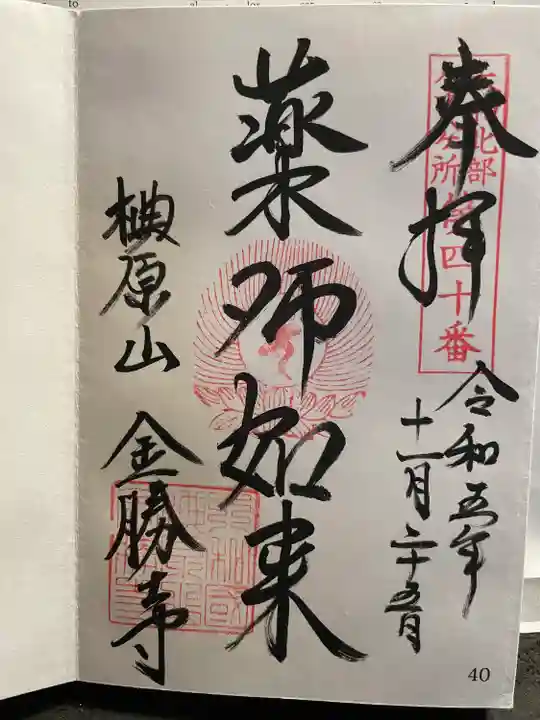 奉拝
北部
ヶ所第四十番
令和五年
十一月二十五日
薬师如来
椣原山 金勝寺
40